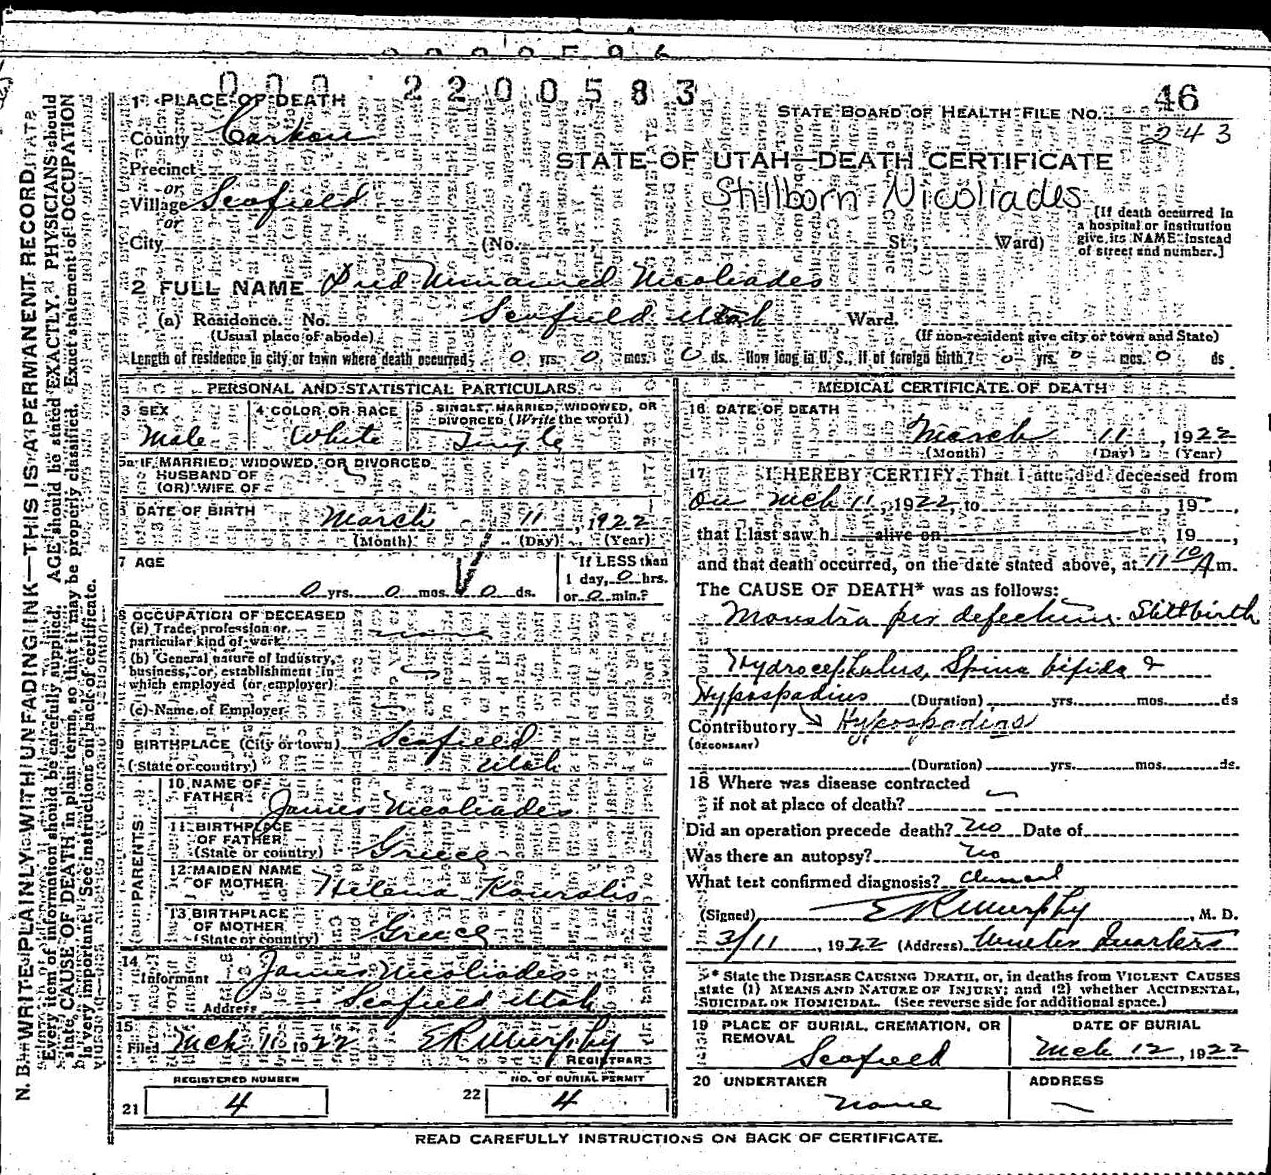 000 2200583
46
STATE BOARD OF HEALTH FILE NO. 243
1 PLACE OF DEATH
County Carbon
STATE OF UTAH—DEATH CERTIFICATE
Precinct
or
Stillborn Nicoliades
Village Scofield
or
City (No. St.; Ward)
(If death occurred in a hospital or institution give its NAME instead of street and number.]
2 FULL NAME Unnamed Nicoliades
(a) Residence. No. Scofield Utah Ward.
(Usual place of abode) (If non-resident give city or town and State)
Length of residence in city or town where death occurred 0 yrs. 0 mos. 0 ds. How long in U. S., if of foreign birth? 0 yrs. 0 mos. 0 ds
PERSONAL AND STATISTICAL PARTICULARS
3 SEX
Male
4 COLOR OR RACE
White
5 SINGLE, MARRIED, WIDOWED, OR DIVORCED (Write the word)
Single
5a IF MARRIED, WIDOWED, OR DIVORCED
HUSBAND OF
(OR) WIFE OF
6 DATE OF BIRTH March 11, 1922
(Month) (Day) (Year)
7 AGE
0 yrs. 0 mos. 0 ds.
If LESS than 1 day, 0 hrs. or 0 min.?
8 OCCUPATION OF DECEASED
(a) Trade, profession or particular kind of work none
(b) General nature of Industry, business, or establishment in which employed (or employer)
(c) Name of Employer
9 BIRTHPLACE (City or town) Scofield
(State or country) Utah
PARENTS
10 NAME OF FATHER James Nicoliades
11 BIRTHPLACE OF FATHER (State or country) Greece
12 MAIDEN NAME OF MOTHER Helena
13 BIRTHPLACE OF MOTHER (State or country) Greece
14
Informant James Nicoliades
Address Scofield Utah
15
Filed Mch 11 1922 E R Murphy
REGISTRAR
REGISTERED NUMBER
21 4
NO. OF BURIAL PERMIT
22 4
MEDICAL CERTIFICATE OF DEATH
16 DATE OF DEATH
March 11, 1922
(Month) (Day) (Year)
17 I HEREBY CERTIFY, That I attended deceased from
on Mch 11, 1922, to , 19 ,
that I last saw h alive on , 19 ,
and that death occurred, on the date stated above, at 11 10 A m.
The CAUSE OF DEATH* was as follows:
Monstra per defectum. Stillbirth
Hydrocephalus, Spina bifida &
Hypospadius (Duration) yrs. mos. ds
Contributory Hypospadias
(SECONDARY)
(Duration) yrs. mos. ds.
18 Where was disease contracted
if not at place of death?
Did an operation precede death? no Date of
Was there an autopsy? no
What test confirmed diagnosis? Clinical
(Signed) E R Murphy, M. D.
3/11, 1922 (Address) Winter Quarters
* State the DISEASE CAUSING DEATH, or, in deaths from VIOLENT CAUSES
state (1) MEANS AND NATURE OF INJURY; and (2) whether ACCIDENTAL,
SUICIDAL OR HOMICIDAL. (See reverse side for additional space.)
19 PLACE OF BURIAL, CREMATION, OR REMOVAL
Scofield
DATE OF BURIAL
Mch 12, 1922
20 UNDERTAKER
none
ADDRESS
READ CAREFULLY INSTRUCTIONS ON BACK OF CERTIFICATE.
N. B.—WRITE PLAINLY WITH UNFADING INK—THIS IS A PERMANENT RECORD.
Every item of information should be carefully supplied. AGE should be stated EXACTLY. PHYSICIANS should
state CAUSE OF DEATH in plain terms, so that it may be properly classified. Exact statement of OCCUPATION
is very important. See instructions on back of certificate.